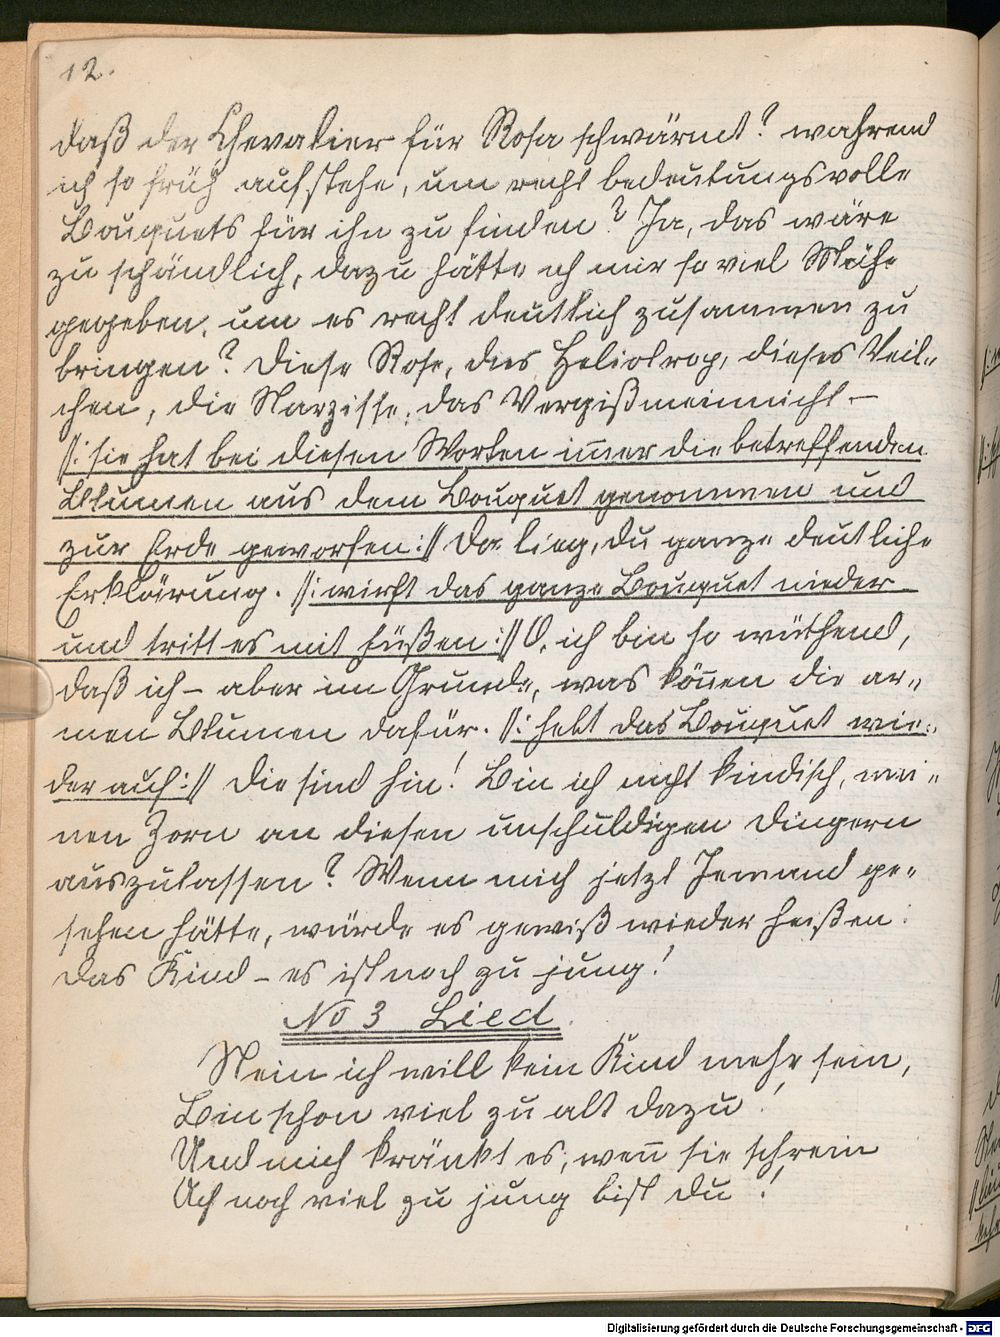 12.
daß der Chevalier für Rosa schwärmt? während
ich so früh aufstehe, um recht bedeutungsvolle
Bouquets für ihn zu finden? Ja, das wäre
zu schändlich, dazu hätte ich mir so viel Mühe
gegeben, um es recht deutlich zusammen zu
bringen? Diese Rose, dies Heliotrop, dieses Veil-
chen, die Narzisse, das Vergißmeinnicht –
//: sie hat bei diesen Worten im̅er die betreffenden
Blumen aus dem Bouquet genommen und
zur Erde geworfen :// Da lieg, du ganze deutliche
Erklärung. //: wirft das ganze Bouquet nieder
und tritt es mit Füßen :// O, ich bin so wüthend,
daß ich – aber im Grunde, was kön̅en die ar-
men Blumen dafür. //: hebt das Bouquet wie-
der auf :// Die sind hin! Bin ich nicht kindisch, mei-
nen Zorn an diesen unschuldigen Dingern
auszulassen? Wenn mich jetzt Jemand ge-
sehen hätte, würde es gewiß wieder heißen:
das Kind – es ist noch zu jung!
No 3 Lied.
Nein ich will kein Kind mehr sein,
Bin schon viel zu alt dazu!
Und mich kränkt es, wen̅ sie schrein
Ach noch viel zu jung bist du!
Digitalisierung gefördert durch die Deutsche Forschungsgemeinschaft - DFG